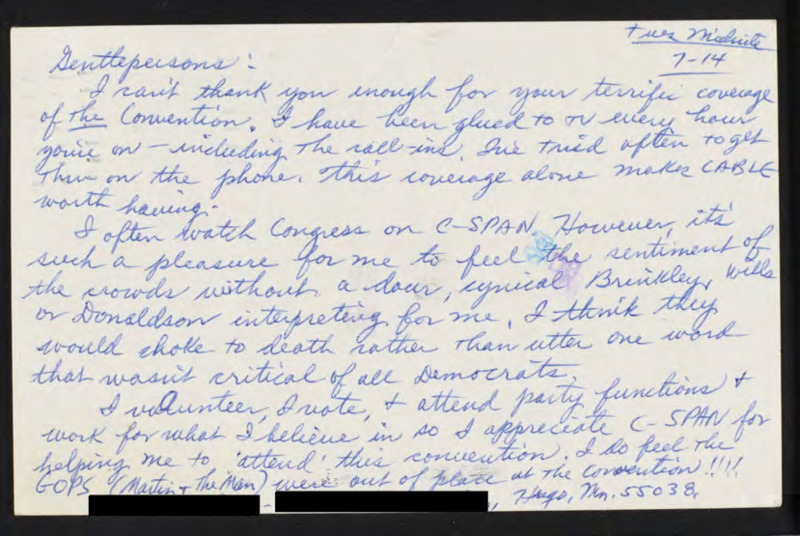 Tues Midnite
7-14
Gentlepersons:
I can't thank you enough for your terrific coverage
of the Convention. I have been glued to TV every hour
you're on - including the call-ins. I've tried often to get
thru on the phone. This coverage alone makes CABLE
worth having.
I often watch Congress on C-SPAN. However, it's
such a pleasure for me to feel the sentiment of
the crowds without a dour, cynical Brinkley, Wills
or Donaldson interpreting for me. I think they
would choke to death rather than utter one word
that wasn't critical of all Democrats.
I volunteer, I vote, + attend party functions +
work for what I believe in so I appreciate C-SPAN for
helping me to 'attend' this convention. I do feel the
GOPS (Martin + the Man) were out of place at the convention!!!!
Hugo, Mn. 55038.